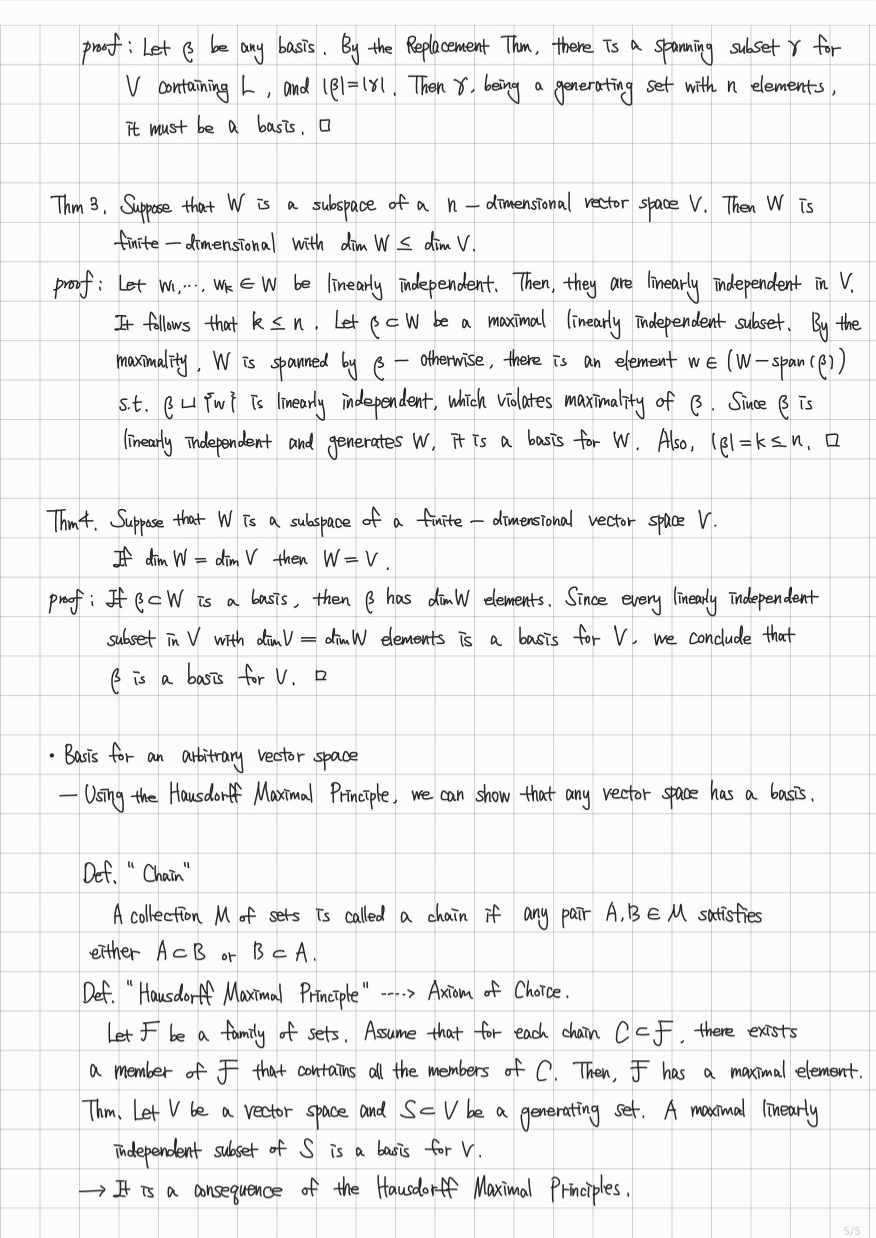 proof : Let β be any basis. By the Replacement Thm, there is a spanning subset γ for
V containing L, and |β|=|γ|. Then γ, being a generating set with n elements,
it must be a basis. □
Thm 3. Suppose that W is a subspace of a n-dimensional vector space V. Then W is
finite-dimensional with dim W ≤ dim V.
proof : Let w₁,⋯, wₖ ∈ W be linearly independent. Then, they are linearly independent in V.
It follows that k ≤ n. Let β ⊂ W be a maximal linearly independent subset. By the
maximality, W is spanned by β – otherwise, there is an element w ∈ (W-span(β))
s.t. β ⊔ {w} is linearly independent, which violates maximality of β. Since β is
linearly independent and generates W, it is a basis for W. Also, |β|=k≤n. □
Thm4. Suppose that W is a subspace of a finite-dimensional vector space V.
If dim W = dim V then W = V.
proof : If β⊂W is a basis, then β has dimW elements. Since every linearly independent
subset in V with dimV = dimW elements is a basis for V, we conclude that
β is a basis for V. □
• Basis for an arbitrary vector space
– Using the Hausdorff Maximal Principle, we can show that any vector space has a basis.
Def. "Chain"
A collection M of sets is called a chain if any pair A,B ∈ M satisfies
either A⊂B or B⊂A.
Def. "Hausdorff Maximal Principle" ----> Axiom of Choice.
Let F be a family of sets. Assume that for each chain C⊂F, there exists
a member of F that contains all the members of C. Then, F has a maximal element.
Thm. Let V be a vector space and S⊂V be a generating set. A maximal linearly
independent subset of S is a basis for V.
→ It is a consequence of the Hausdorff Maximal Principles.
5/5